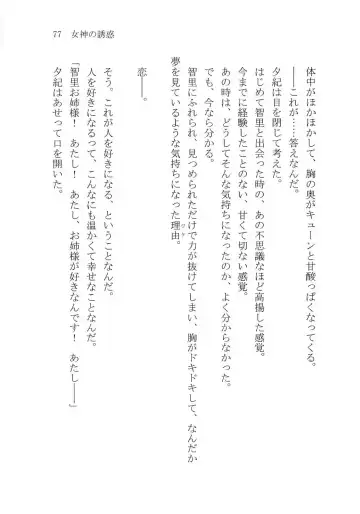 77　女神の誘惑
体中がほかほかして、胸の奥がキューンと甘酸っぱくなってくる。
――これが……答えなんだ。
夕紀は目を閉じて考えた。
はじめて智里と出会った時の、あの不思議なほど高揚した感覚。
今までに経験したことのない、甘くて切ない感覚。
あの時は、どうしてそんな気持ちになったのか、よく分からなかった。
でも、今なら分かる。
智里にふれられ、見つめられただけで力が抜けてしまい、胸がドキドキして、なんだか
夢を見ているような気持ちになった理由。
恋――。
そう。これが人を好きになる、ということなんだ。
人を好きになるって、こんなにも温かくて幸せなことなんだ。
「智里お姉様！　あたし！　あたし、お姉様が好きなんです！　あたし――」
夕紀はあせって口を開いた。